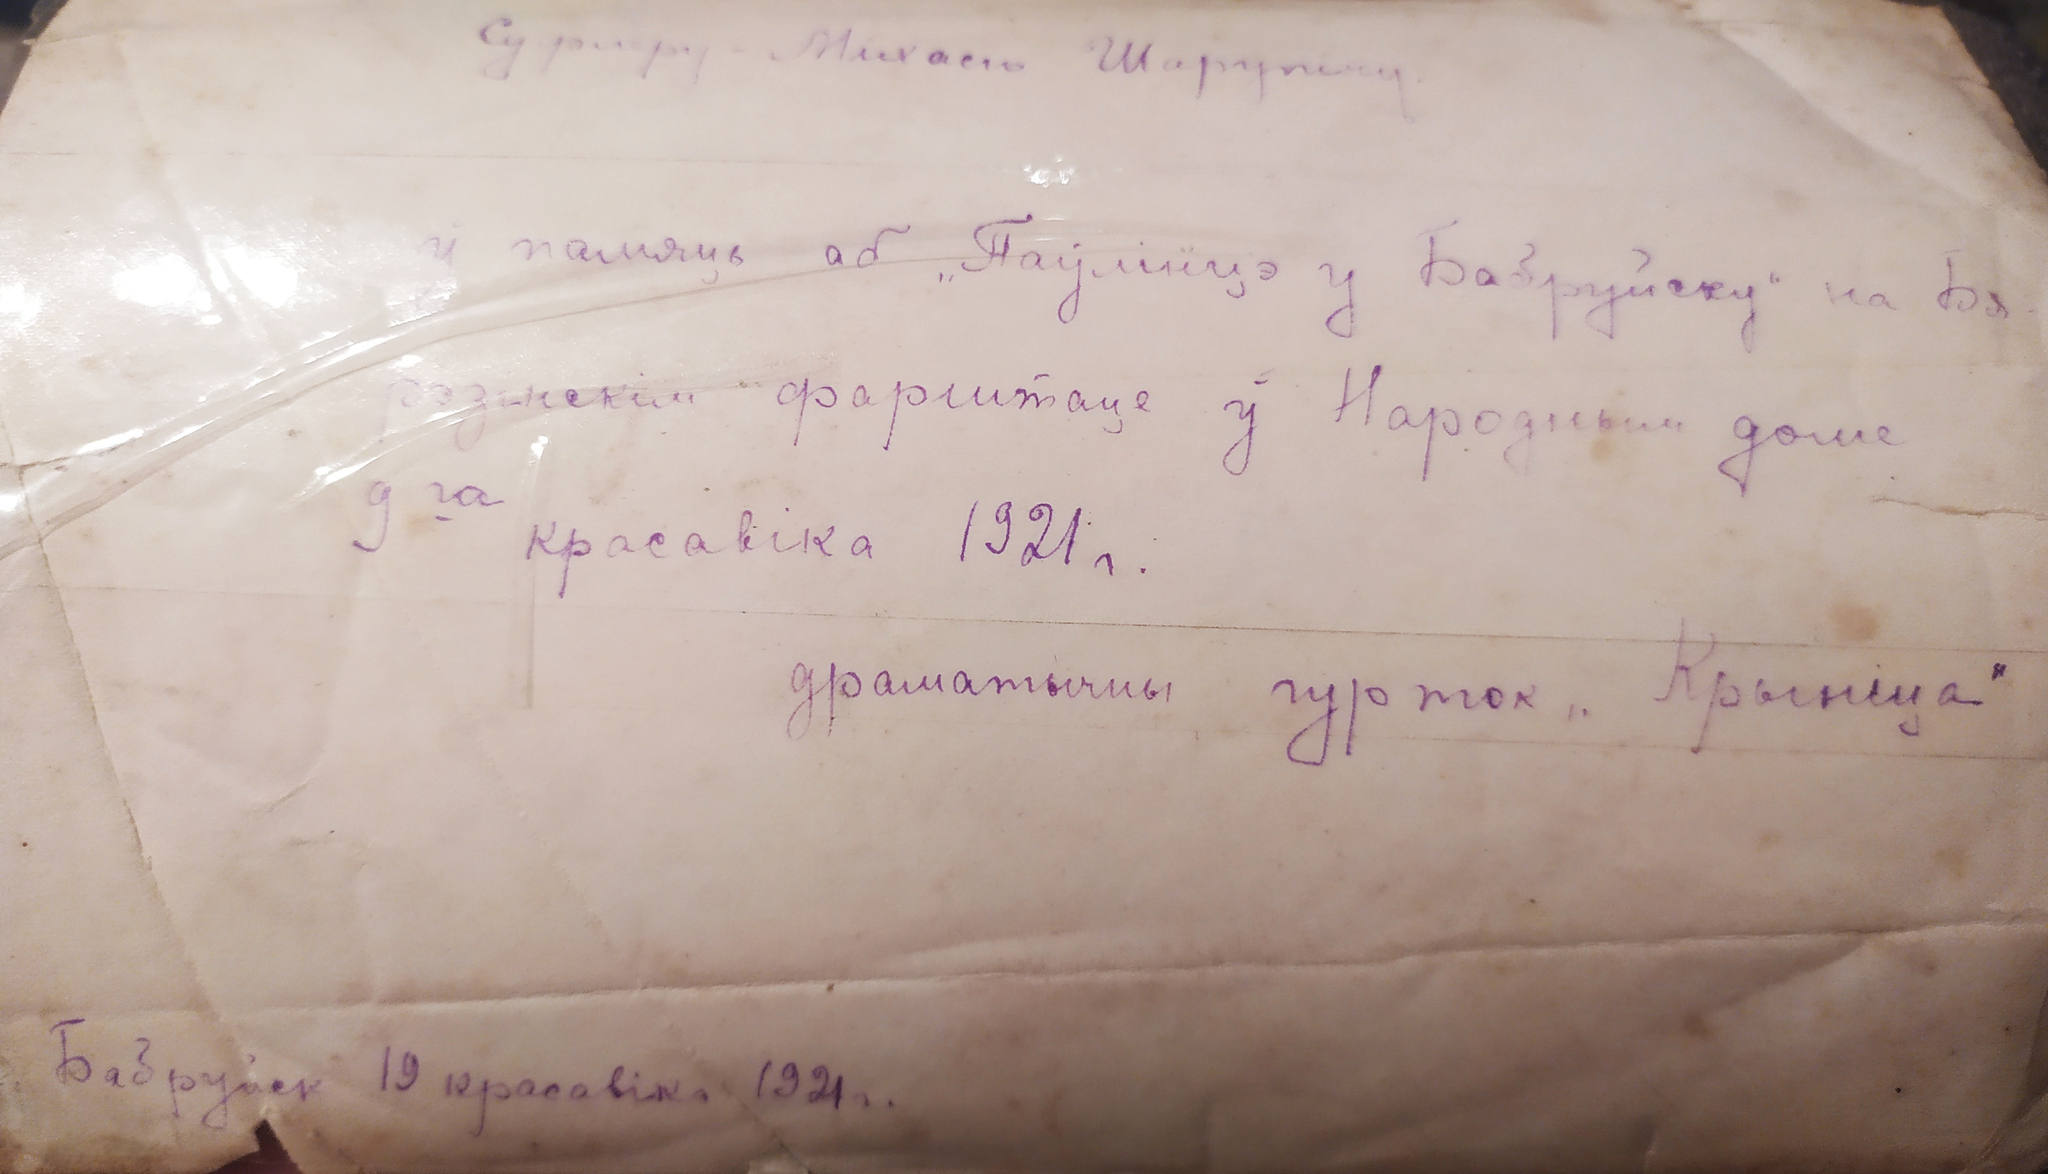 Суфлеру - Михасю Шарупичу.
ў памяць аб „Паўлінцэ у Бабруйску" на Бя-
рэзінскім фарштаце ў Народным доме
9га красавіка 1921 г.
драматычны гурток „Крыніца"
Бабруйск 19 красавіка 1921 г.